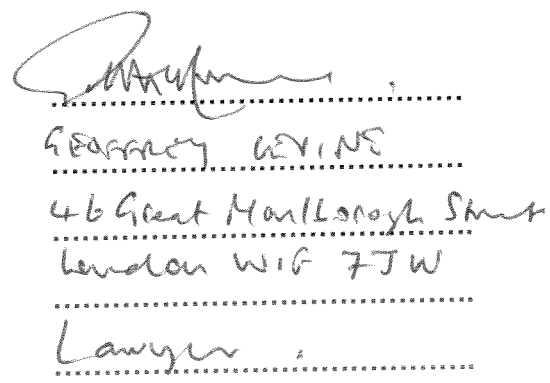 GEOFFREY LEVINE
46 Great Marlborough Street
London W1F 7JW
Lawyer